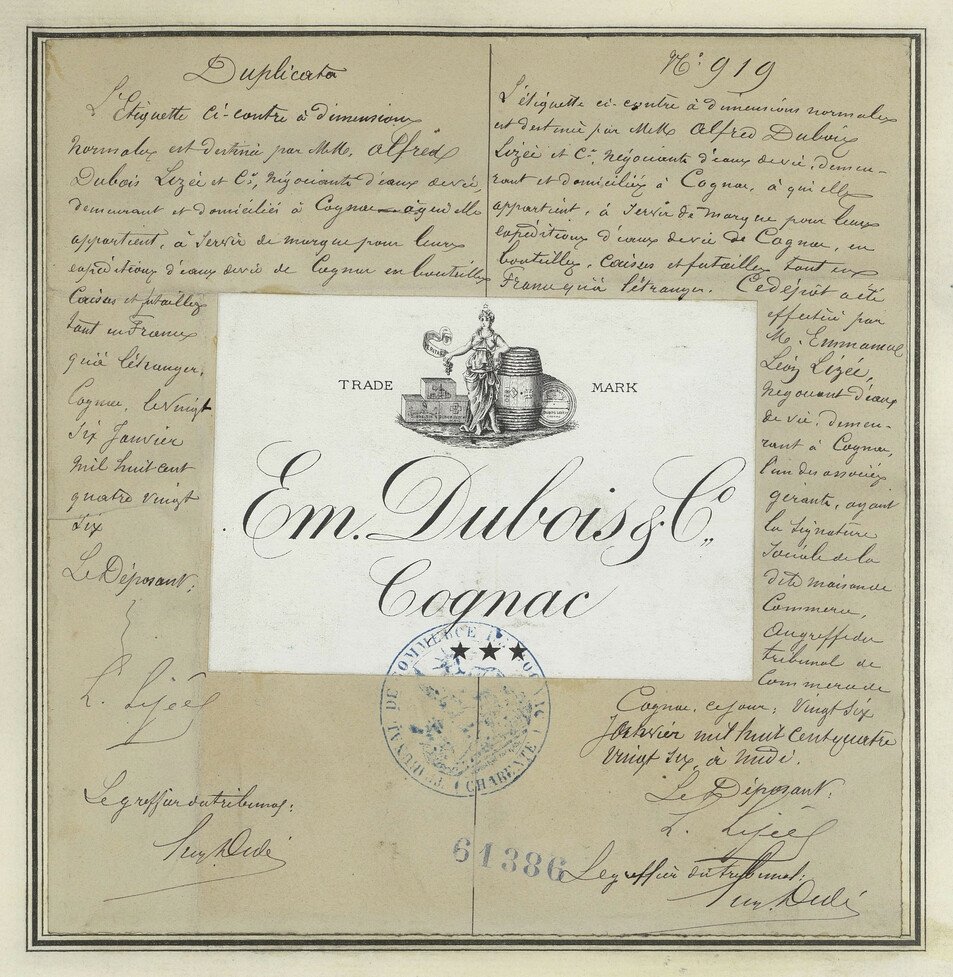 Duplicata
L'Etiquette ci-contre à dimensions
normales est destinée par MM. Alfred
Dubois Lizée et Cie, négociants d'eaux de vie,
demeurant et domiciliés à Cognac à qui elle
appartient, à servir de marque pour leurs
expéditions d'eaux de vie de Cognac en bouteilles
Caisses et futailles
tant en France
qu'à l'étranger.
Cognac, le vingt
six Janvier
mil huit cent
quatre vingt
six
Le Déposant:
L. Lizée
Le greffier du tribunal:
No 919
L'étiquette ci-contre à dimensions normales
est destinée par MM. Alfred Dubois
Lizée et Cie, négociants d'eaux de vie, demeu-
rant et domiciliés à Cognac, à qui elle
appartient, à servir de marque pour leurs
expéditions d'eaux de vie de Cognac, en
bouteilles, caisses et futailles tant en
France qu'à l'étranger. Ce dépôt a été
effectué par
M. Emmanuel
Léon Lizée,
négociant d'eaux
de vie, demeu-
rant à Cognac,
l'un des associés
gérants, ayant
la signature
sociale de la
dite maison de
Commerce,
au greffe du
tribunal de
Commerce de
Cognac, ce jour, vingt six
Janvier mil huit cent quatre
vingt six, à midi.
Le Déposant:
L. Lizée
Le greffier du tribunal:
TRADE MARK
Em. Dubois & Co,,
Cognac
★★★
TRIBUNAL DE COMMERCE DE COGNAC
(CHARENTE)
61386